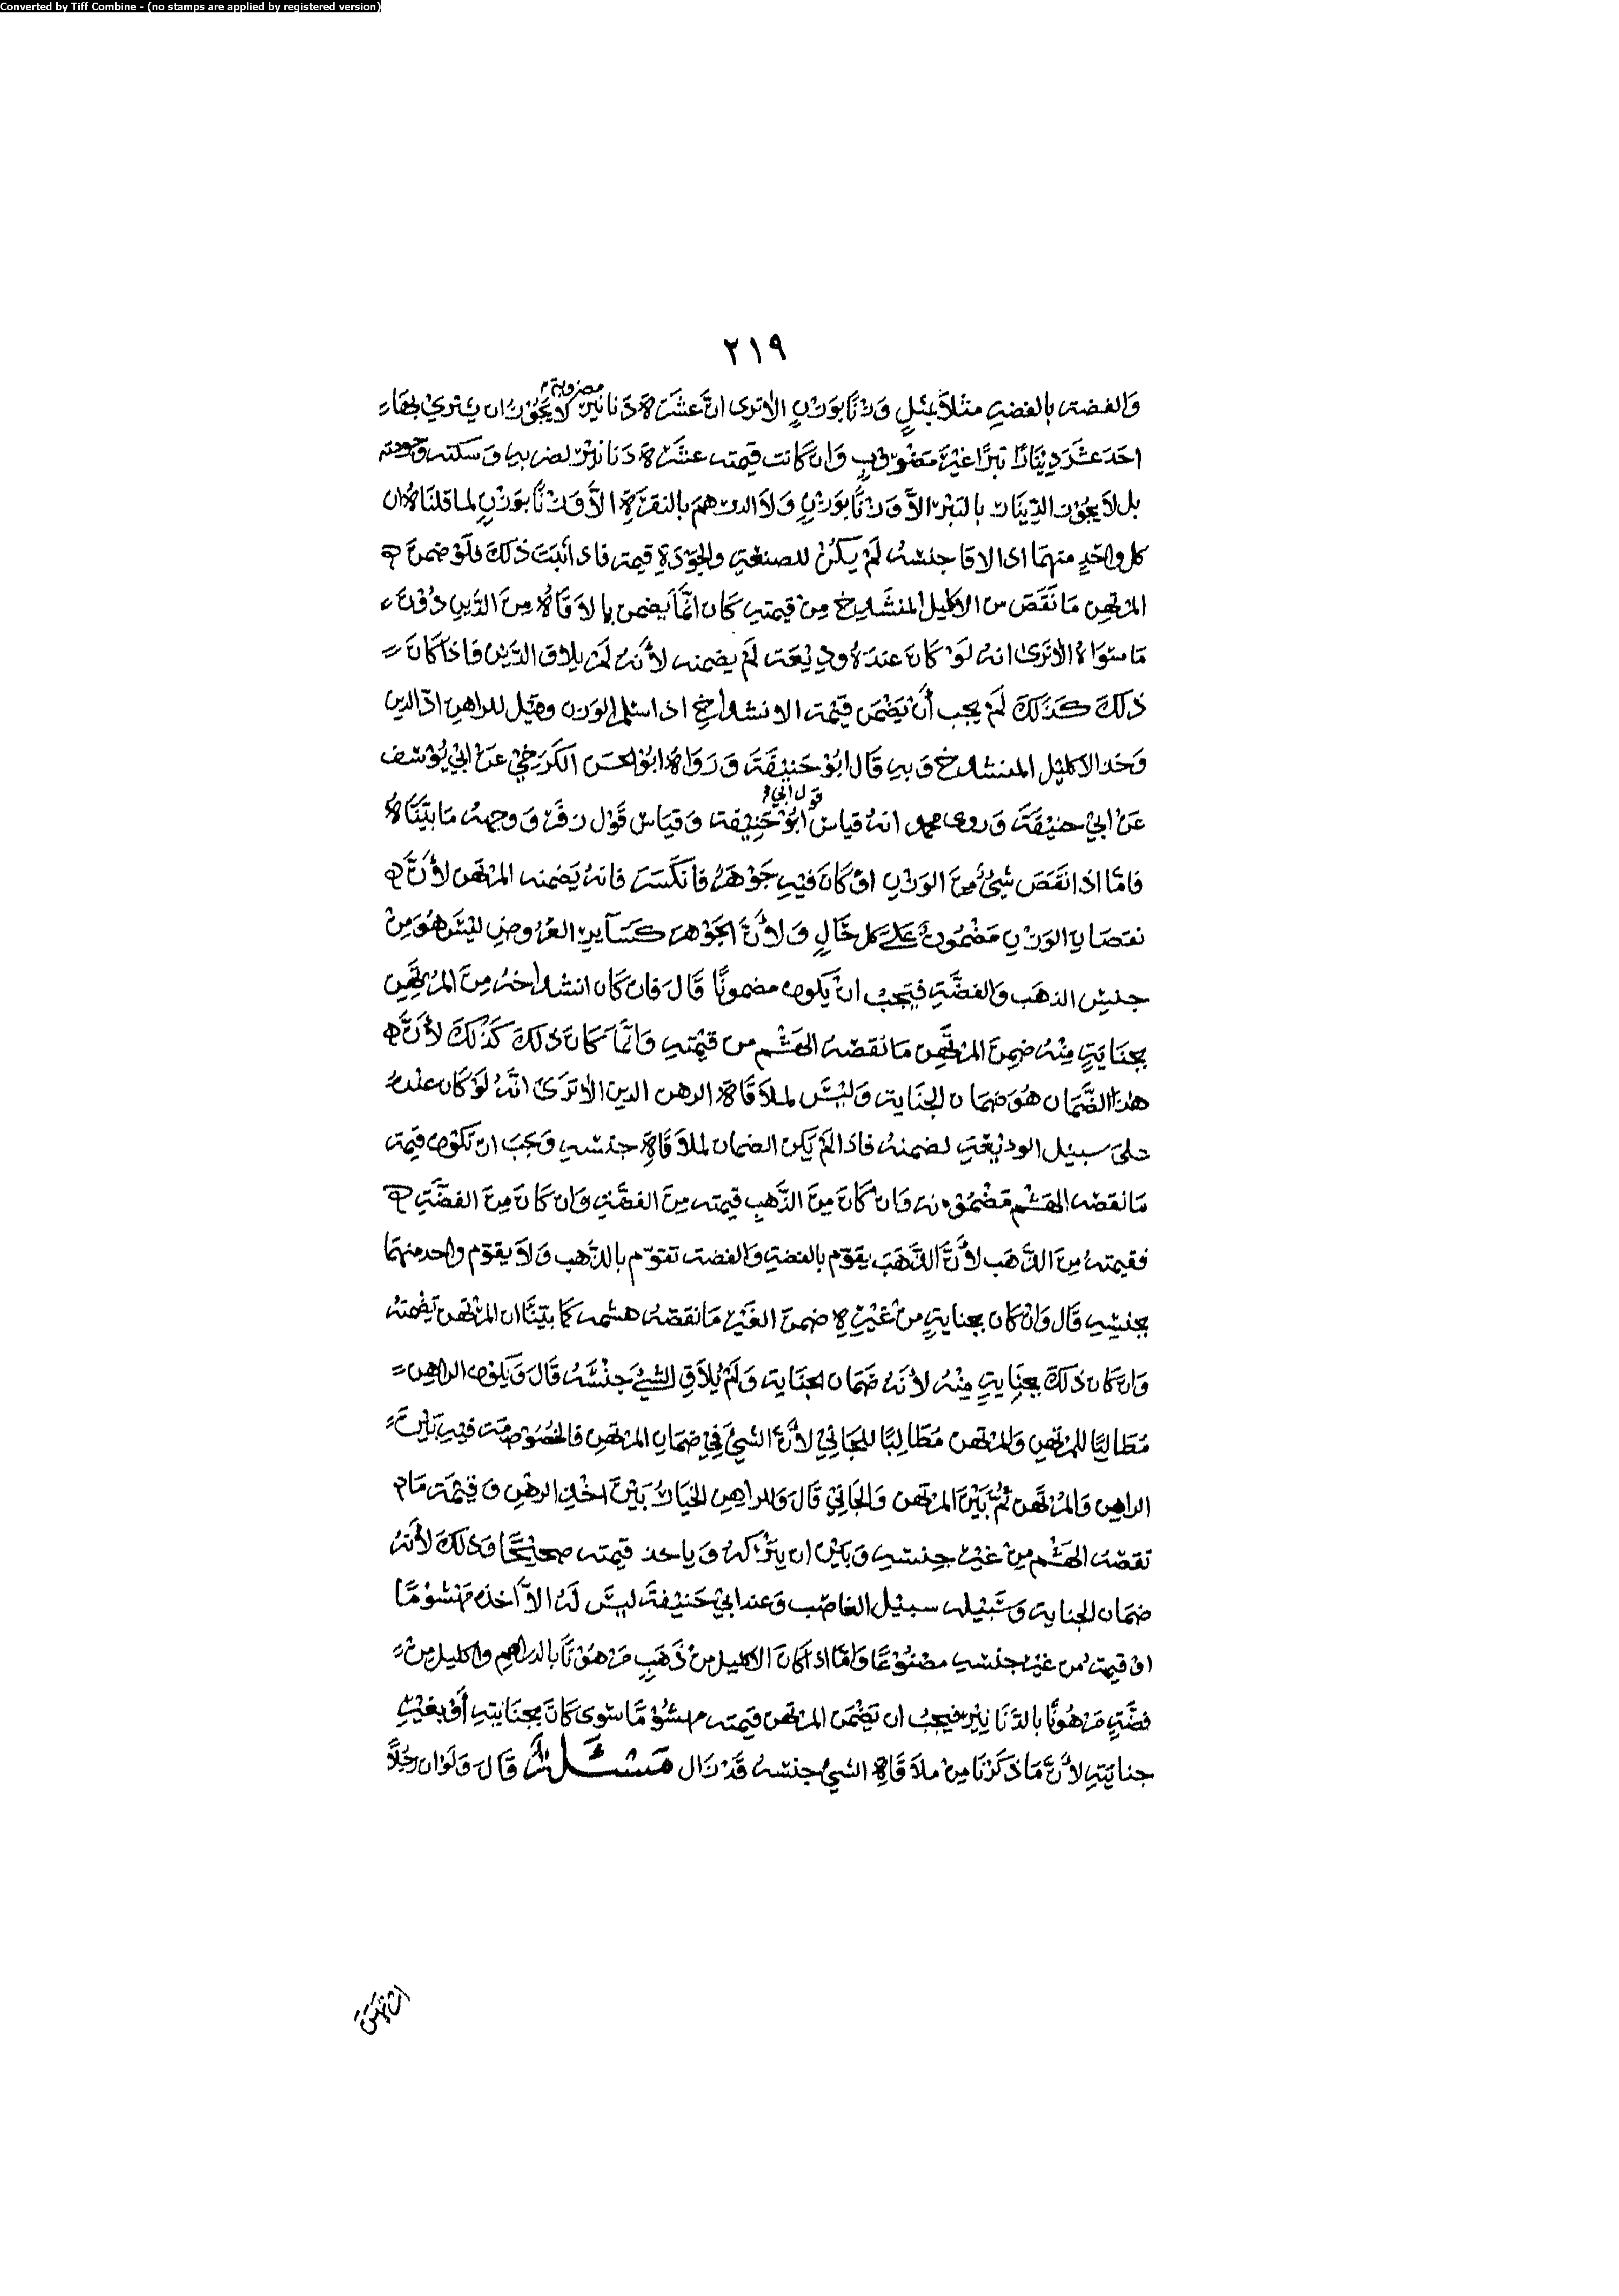 Converted by Tiff Combine - (no stamps are applied by registered version)
٢١٩
والفضة بالفضة مثلاً بمثلٍ وزنًا بوزنٍ الا ترى انَّ عشرة دنانير مضروبة لا يجوز ان يشتري بها
احد عشر دينارًا تبرًا غير مضروبٍ وان كانت قيمته عشرة دنانير لضربها وسكته وجودته
بل لا يجوز الدينار بالتبر الاَّ وزنًا بوزنٍ ولا الدرهم بالنقرة الاَّ وزنًا بوزنٍ لما قلناه ان
كل واحدٍ منهما اذا لاقا جنسه لم يكن للصنعة والجودة قيمة فاذا ثبت ذلك فلو ضمن
المرتهن ما نقص من الاكليل المنشدخ من قيمته كان انما يضمن بملاقاة من الدَّين دون
ما سواه الا ترى انه لو كان عنده وديعة لم يضمنه لأنه لم يلاق الدين فاذا كان
ذلك كذلك لم يجب أن يضمن قيمة الانشداخ اذا سلم الوزن وقيل للراهن ادّ الدين
وخذ الاكليل المنشدخ وبه قال ابو حنيفة ورواه ابو الحسن الكرخي عن ابي يوسف
عن ابي حنيفة وروى محمد انه قياس قول أبي حنيفة وقياس قول زفر ووجهه ما بيَّناه
فامَّا اذا نقص شيء من الوزن او كان فيه جوهر فانكسر فانه يضمنه المرتهن لأنَّ
نقصان الوزن مضمون على كل حالٍ ولأنَّ الجوهر كسائر العروض ليس هو من
جنس الذهب والفضة فيجب ان يكون مضمونًا قال فان كان انشداخه من المرتهن
بجنايةٍ منه ضمن المرتهن ما نقصه الهشم من قيمته وانما كان ذلك كذلك لأنَّ
هذا الضمان هو ضمان الجناية وليس لملاقاة الرهن الدين الا ترى انَّه لو كان عنده
على سبيل الوديعة لضمنه فاذا لم يكن الضمان لملاقاة جنسه وجب ان تكون قيمة
ما نقصه الهشم مضمونه وان كان من الذَّهب قيمته من الفضة وان كان من الفضَّة
فقيمته من الذَّهب لأنَّ الذَّهب يقوّم بالفضة والفضة تقوّم بالذَّهب ولا يقوّم واحد منهما
بجنسه قال وان كان بجنايةٍ من غيره ضمن الغير ما نقصه هشمه كما بيّنا ان المرتهن يضمنه
وان كان ذلك بجنايةٍ منه لأنه ضمان الجناية ولم يُلاق الشيء جنسه قال ويكون الراهن
مطالبًا للمرتهن والمرتهن مطالبًا للجاني لأنَّ الشيء في ضمان المرتهن فالخصومة فيه بين
الراهن والمرتهن ثم بين المرتهن والجاني قال وللراهن الخيار بين اخذ الرهن وقيمة ما
نقصه الهشم من غير جنسه وبين ان يتركه وياخذ قيمته صحيحًا وذلك لأنه
ضمان الجناية وسبيله سبيل الغاصب وعند ابي حنيفة ليس له الاَّ اخذه مهشومًا
او قيمته من غير جنسه مصنوعًا وامّا اذا كان الاكليل من ذهبٍ مرهونًا بالدراهم واكليل من
فضةٍ مرهونًا بالدنانير فيجب ان يضمن المرتهن قيمته مهشومًا سوى كان بجنايته أو بغير
جنايته لأنَّ ما ذكرنا من ملاقاة الشيء جنسه قد زال مسئلة قال ولو ان رجلاً